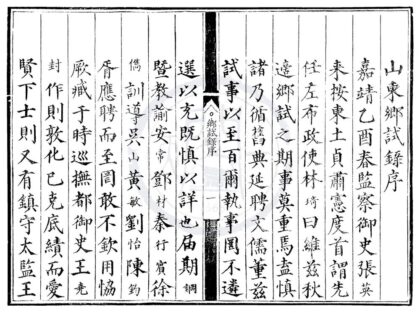 山東鄉試錄序
嘉靖乙酉春監察御史張英
來按東土貞肅憲度首謂先
任左布政使林琦曰維茲秋
適鄉試之期事莫重焉盍慎
諸乃循舊典延聘文儒董茲
試事以至百爾執事罔不遴
鄉試錄序
一
選以充既慎以詳也屆期
暨教諭安常鄧村秦行賓徐
訓導吳山黃敏劉怡陳
胥應聘而至罔敢不欽用恊
厥臧于時巡撫都御史王堯
封作則敦化已克底績而愛
賢下士則又有鎮守太監王